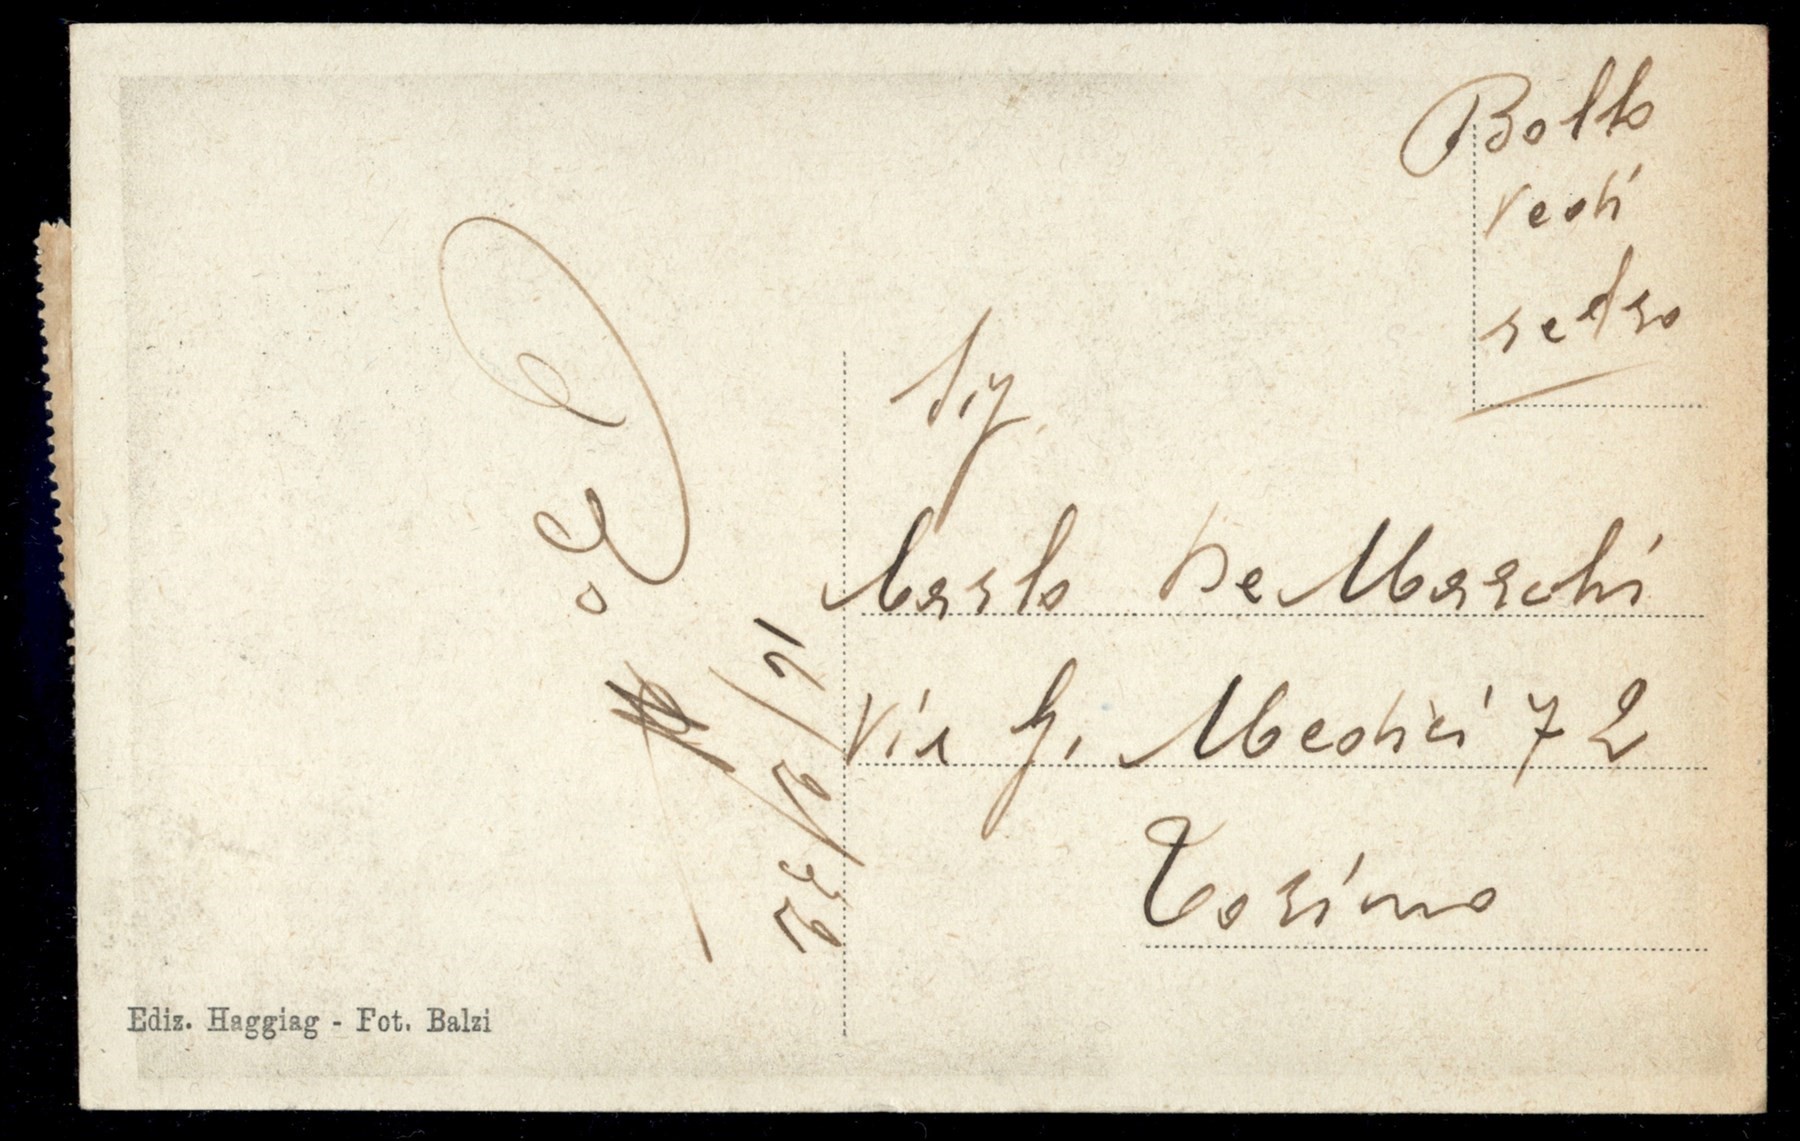 Bollo
vedi
retro
Sig.
Carlo De Marchi
Via G. Medici 72
Torino
Ediz. Haggiag - Fot. Balzi